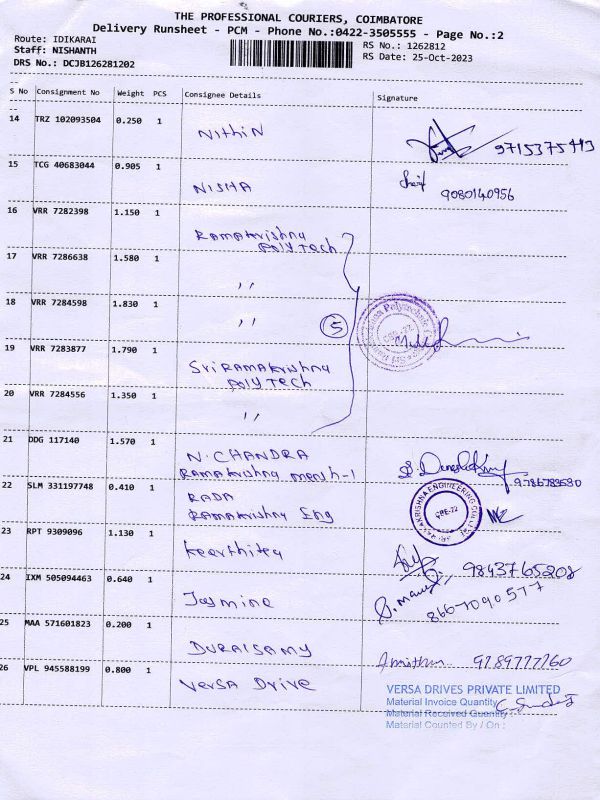 THE PROFESSIONAL COURIERS, COIMBATORE
Delivery Runsheet - PCM - Phone No.:0422-3505555 - Page No.:2
Route: IDIKARAI
RS No.: 1262812
Staff: NISHANTH
RS Date: 25-Oct-2023
DRS No.: DCJB126281202
S No Consignment No Weight PCS Consignee Details Signature
14 TRZ 102093504 0.250 1 Nithin 9715375443
15 TCG 40683044 0.905 1 NISHA 9080140956
16 VRR 7282398 1.150 1 Ramakrishna Poly Tech
17 VRR 7286638 1.580 1 ,,
18 VRR 7284598 1.830 1 ,, 5
19 VRR 7283877 1.790 1 Sri Ramakrishna Poly Tech
20 VRR 7284556 1.350 1 ,,
21 DDG 117140 1.570 1 N. CHANDRA
Ramakrishna
22 SLM 331197748 0.410 1 RADA
Ramakrishna Eng
RAMAKRISHNA ENGINEERING
CBE-22
23 RPT 9309096 1.130 1 9843765208
24 IXM 505094463 0.640 1 Jasmine 8667090577
25 MAA 571601823 0.200 1 DURAISAMY 9789777760
26 VPL 945588199 0.800 1 Versa Drive
VERSA DRIVES PRIVATE LIMITED
Material Invoice Quantity
Material Received Quantity :
Material Counted By / On :